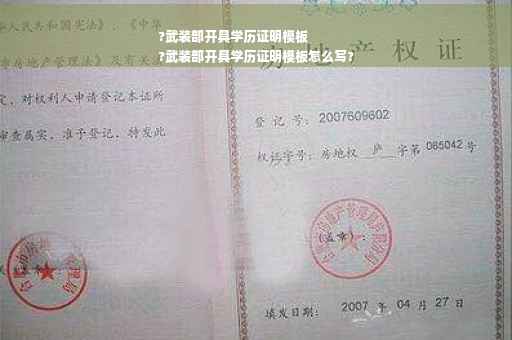 ?武装部开具学历证明模板
?武装部开具学历证明模板怎么写?
华人民共和国宪法》、《中华
房地产管理法》及有关
定，对权利人申请登记本证所
审查属实，准予登记，特发此
房地产权证
登 记 号：2007609602
权证字号：房地权 庐 字第 065042 号
(盖章)：
填发日期： 2007 年 04 月 27 日